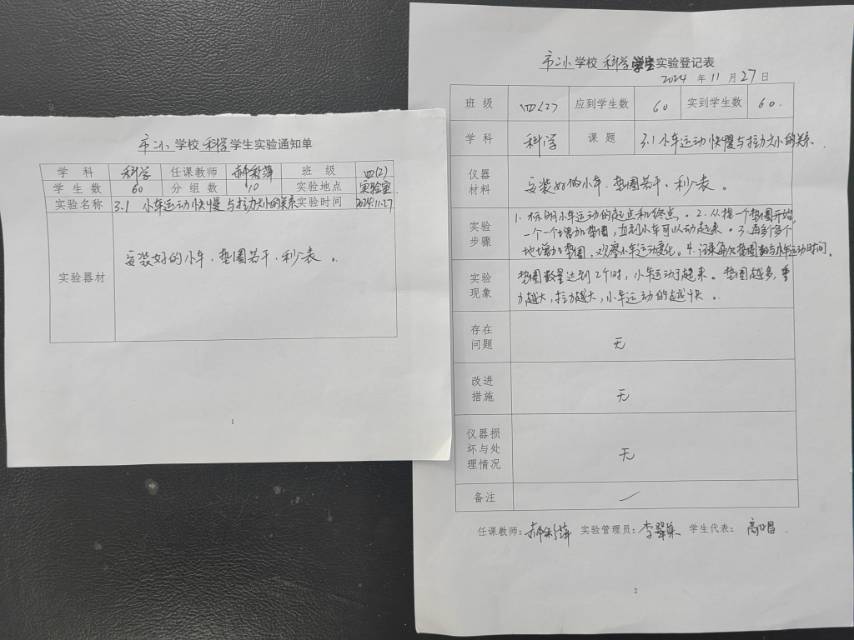 市二小学校科学学生实验通知单
学科 科学 任课教师 班级 四(2)
学生数 60 分组数 10 实验地点 实验室
实验名称 3.1 小车运动快慢与拉力大小的关系 实验时间 2024.11.27
实验器材 安装好的小车、垫圈若干、秒表。
1
市二小学校科学学生实验登记表
2024年11月27日
班级 四(2) 应到学生数 60 实到学生数 60.
学科 科学 课题 3.1小车运动快慢与拉力大小的关系.
仪器材料 安装好的小车、垫圈若干、秒表。
实验步骤 1.标明小车运动的起点和终点。2.从挂一个垫圈开始,
一个一个增加垫圈,直到小车可以动起来。3.再多个
地增加垫圈,观察小车运动变化。4.记录每次垫圈数与小车运动时间。
实验现象 垫圈数量达到2个时,小车运动起来。垫圈越多,重
力越大,拉力越大,小车运动的越快。
存在问题 无
改进措施 无
仪器损坏与处理情况 无
备注 /
任课教师: 实验管理员: 李翠集 学生代表:
2